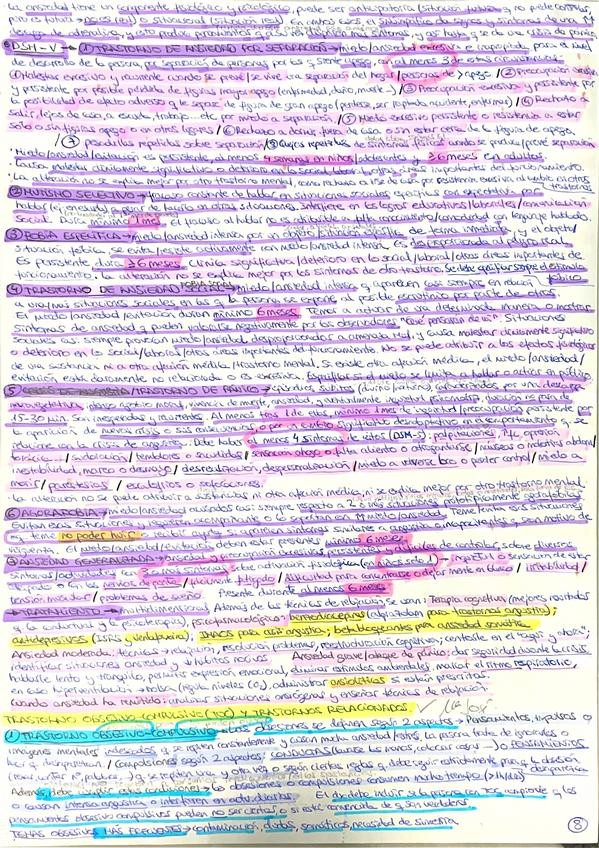 La ansiedad tiene un componente fisiológico y psicológico, puede ser anticipatoria (situación futura) y no puede controlar,
DSM-V → ① TRASTORNO DE ANSIEDAD POR SEPARACIÓN → miedo/ansiedad excesiva e inapropiada para el nivel
de desarrollo de la persona por separación de personas por las q siente apego, con al menos 3 de estas circunstancias:
① Malestar excesivo y recurrente cuando se prevé/se vive una separación del hogar/personas > apego / ② Preocupación excesiva
y persistente por posible pérdida de figuras mayor apego (enfermedad, daño, muerte...) / ③ Preocupación excesiva y persistente por
la posibilidad de efecto adverso q le separe de figura de gran apego (perderse, ser raptado, accidente, enfermar) / ④ Rechazo a
salir, lejos de casa, a escuela, trabajo... etc por miedo a separación / ⑤ Miedo excesivo persistente o resistencia a estar
solo o sin figuras apego o en otros lugares / ⑥ Rechazo a dormir fuera de casa o sin estar cerca de la figura de apego
/ ⑦ pesadillas repetidas sobre separación / ⑧ Quejas repetidas de síntomas físicos cuando se produce/prevé separación
· Miedo/ansiedad/evitación es persistente, al menos 4 semanas en niños/adolescentes y ≥ 6 meses en adultos.
· Causa malestar clínicamente significativo o deterioro en lo social, laboral u otras áreas importantes del funcionamiento.
· La alteración no se explica mejor por otro trastorno mental, como rechazo a irse de casa por resistencia excesiva al cambio en otros trastornos
② MUTISMO SELECTIVO → fracaso constante de hablar en situaciones sociales específicas con expectativa por
hablar, a pesar de hacerlo en otras situaciones. Interfiere en los logros educativos/laborales/comunicación
social. Dura mínimo 1 mes. El fracaso al hablar no es atribuible a falta conocimiento/comodidad con lenguaje hablado.
③ FOBIA ESPECÍFICA → miedo/ansiedad intensa por un objeto o situación específica de forma inmediata, y el objeto/
situación fóbica, se evita/resiste activamente con miedo/ansiedad intensa. Es desproporcionada al peligro real.
Es persistente, dura ≥ 6 meses. Clínica significativa/deterioro en lo social/laboral/otras áreas importantes de
funcionamiento. La alteración no se explica mejor por los síntomas de otro trastorno. Se debe especificar sobre el estímulo fóbico
④ TRASTORNO DE ANSIEDAD FOBIA SOCIAL miedo/ansiedad intensa q aparecen casi siempre en relación
a una/más situaciones sociales en las q la persona se expone al posible escrutinio por parte de otros.
El miedo/ansiedad/evitación duran mínimo 6 meses. Temor a actuar de una determinada manera o mostrar
síntomas de ansiedad q pueden valorarse negativamente por los observadores "Qué pensarán de mi". Situaciones
sociales casi siempre provocan miedo/ansiedad, desproporcionados a amenaza real, y causa malestar clínicamente significativo
o deterioro en lo social/laboral/otras áreas importantes del funcionamiento. No se puede atribuir a los efectos fisiológicos
de una sustancia ni a otra afección médica/trastorno mental. Si existe otra afección médica, el miedo/ansiedad/
evitación, está claramente no relacionada o es excesiva. Especificar si el miedo se limita a hablar o actuar en público
⑤ / TRASTORNO DE PÁNICO → episodios súbitos (diurno/nocturno), caracterizados por una descarga
neurovegetativa,
15-30 min. Son inesperados y recurrentes. Al menos tras 1 de ellos, mínimo 1 mes de inquietud/preocupación persistente por
la aparición de nuevas crisis o sus consecuencias, o por un cambio significativo desadaptativo en el comportamiento q se
relacione con la crisis de angustia. Debe haber al menos 4 síntomas de estos (DSM-5): palpitaciones, ↑FC, opresión
torácica / sudoración / temblores o sacudidas / sensación ahogo o falta aliento o atragantarse / náuseas o molestias abdominales/
inestabilidad, mareo o desmayo / desrealización, despersonalización / miedo a volverse loco o perder control / miedo a
morir / parestesias / escalofríos o sofocaciones.
La alteración no se puede atribuir a sustancias ni otra afección médica, ni se explica mejor por otro trastorno mental.
⑥ AGORAFOBIA → miedo/ansiedad causados casi siempre respecto a 2 o más situaciones prototípicamente agorafóbicas
Evitan esas situaciones y requieren acompañante o la soportan con ↑↑ Miedo/ansiedad. Teme/evita esas situaciones
xq teme no poder huir o recibir ayuda si aparecen síntomas similares a angustia o incapacitantes, q son motivo de
vergüenza. El miedo/ansiedad/evitación deben estar presentes mínimo 6 meses
⑦ ANSIEDAD GENERALIZADA → ansiedad y preocupación excesivas, persistentes y difíciles de controlar, sobre diversos
inquietud o sensación de estar
atrapado o con los nervios de punta / fácilmente fatigado / dificultad para concentrarse o dejar mente en blanco / irritabilidad /
tensión muscular / problemas de sueño Presente durante al menos 6 meses
→ TRATAMIENTO → multidimensional. Además de las técnicas de relajación, se usan: Terapia cognitiva (mejores resultados
q la conductual y la psicoterapia), psicofarmacológico: benzodiacepinas (alprazolam para trastornos angustia);
antidepresivos (ISRS y venlafaxina); IMAOS para crisis angustia; betabloqueantes para ansiedad somática
Ansiedad moderada: técnicas → relajación, resolución problemas, reestructuración cognitiva; centrarse en el "aquí y ahora".
identificar situaciones ansiedad y ↓ hábitos nocivos Ansiedad grave/ataque de pánico: dar seguridad durante la crisis,
hablarle lento y tranquilo, permitir expresión emocional, eliminar estímulos ambientales, marcar el ritmo respiratorio,
en caso hiperventilación → bolsa (regula niveles CO₂), administrar ansiolíticos si están prescritos.
Cuando ansiedad ha remitido: analizar situaciones ansiógenas y enseñar técnicas de relajación.
TRASTORNO OBSESIVO COMPULSIVO (TOC) Y TRASTORNOS RELACIONADOS
① TRASTORNO OBSESIVO-COMPULSIVO → Las obsesiones se definen según 2 aspectos → Pensamientos, impulsos o
imágenes mentales indeseados q se repiten constantemente y causan mucha ansiedad/estrés, la persona trata de ignorarlos o
hacer q desaparezcan. / Compulsiones según 2 aspectos: CONDUCTAS (lavarse las manos, colocar cosas...) o PENSAMIENTOS
(rezar, contar nº, palabras...) q se repiten una y otra vez o según ciertas reglas q debe seguir estrictamente para q la obsesión desaparezca
Además, debe cumplir estas condiciones → las obsesiones o compulsiones consumen mucho tiempo (>1h/día)
o causan intensa angustia o interfieren en activ. diarias. Es dudoso incluir si la persona con TOC comprende q los
pensamientos obsesivo compulsivos pueden no ser ciertos, o si está convencida de q son verdaderos
TEMAS OBSESIVOS MÁS FRECUENTES → contaminación, dudas, somáticos, necesidad de simetría
⑧